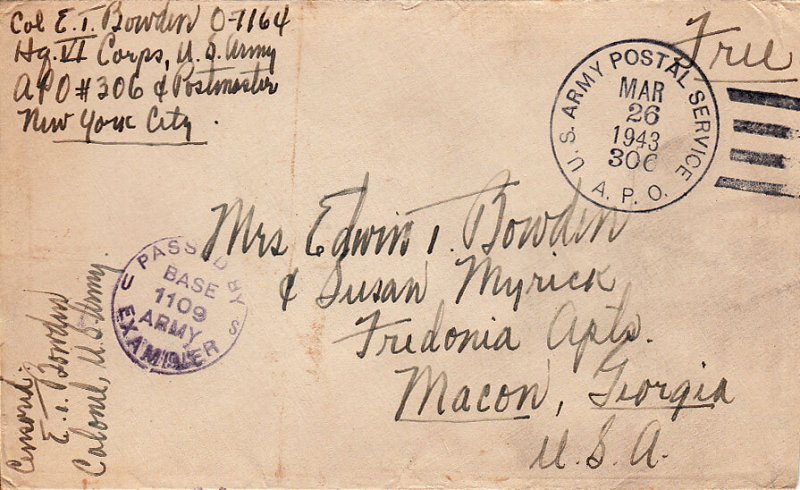 Col E. T. Bowden O-7164
Hq. VI Corps, U. S. Army
APO #306 % Postmaster
New York City.
Free
U. S. ARMY POSTAL SERVICE
MAR
26
1943
306
A. P. O.
Mrs Edwin T. Bowden
% Susan Myrick
Fredonia Apts.
Macon, Georgia
U. S. A.
PASSED BY
BASE
1109
ARMY
EXAMINER
U S
Censored
E. T. Bowden
Colonel, U. S. Army.